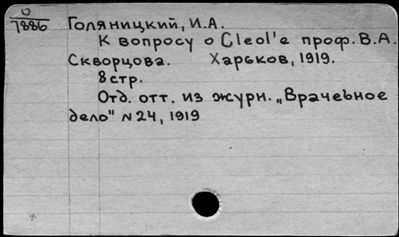 О
7886
Голяницкий, И.А.
К вопросу о Cleol'е проф. В.А.
Скворцова. Харьков, 1919.
8 стр.
Отд. отт. из журн. „Врачебное
дело" N 24, 1919